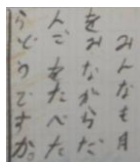 みんなも月
をみながらだ
んごをたべた
らどうですか。